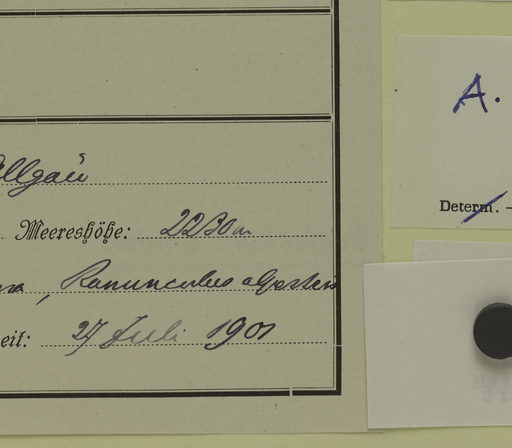 Allgäu
Meereshöhe: 2230 m
, Ranunculus alpestris
eit: 27 Juli 1901
A.
Determ. –